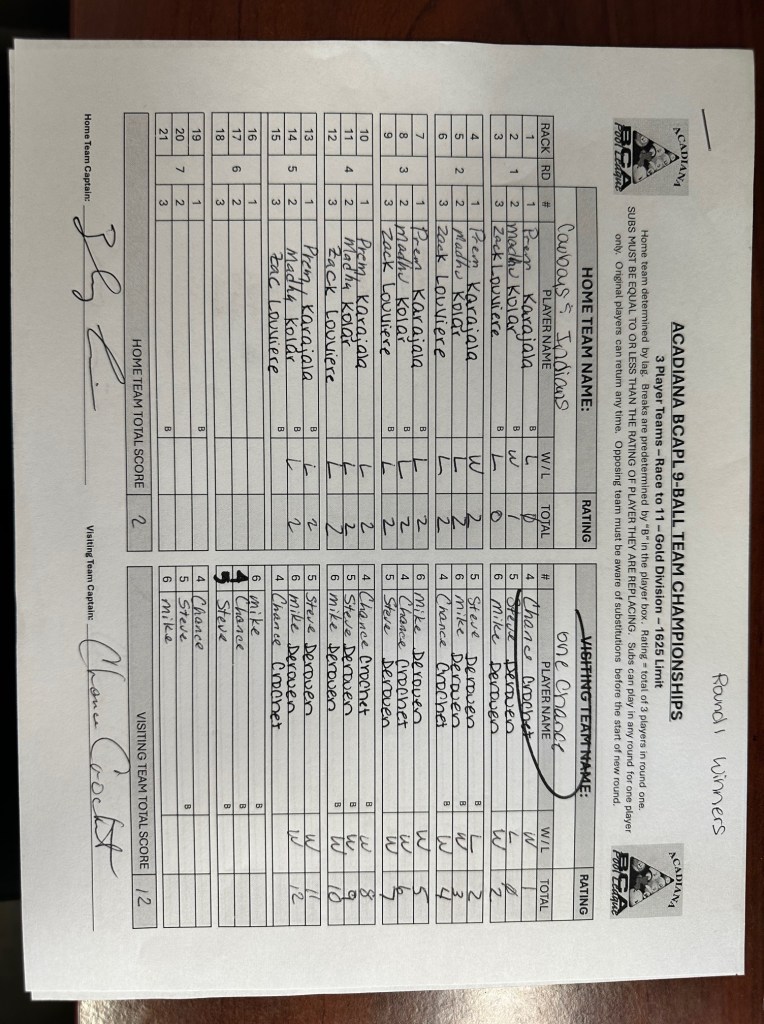 Round 1 Winners
ACADIANA
BCA
Pool League
ACADIANA BCAPL 9-BALL TEAM CHAMPIONSHIPS
3 Player Teams – Race to 11 – Gold Division – 1625 Limit
Home team determined by lag. Breaks are predetermined by "B" in the player box. Rating = total of 3 players in round one.
SUBS MUST BE EQUAL TO OR LESS THAN THE RATING OF PLAYER THEY ARE REPLACING. Subs can play in any round for one player
only. Original players can return any time. Opposing team must be aware of substitutions before the start of new round.
ACADIANA
BCA
Pool League
HOME TEAM NAME: RATING VISITING TEAM NAME: RATING
Cowboys & Indians one Chance
RACK RD # PLAYER NAME W/L TOTAL # PLAYER NAME W/L TOTAL
1 1 Prem Karajala B L 0 4 Chance Crochet W 1
2 1 2 madhu Kolar W 1 5 Steve Derowen L
3 3 Zack Louviere B L 0 6 mike Derowen W 2
4 1 Prem Karajala W 2 5 Steve Derowen B L 2
5 2 2 Madhu Kolar L 2 6 mike Derowen B W 3
6 3 Zack Louviere L 2 4 Chance Crochet B W 4
7 1 Prem Karajala B L 2 6 Mike Derowen W 5
8 3 2 madhu Kolar B L 2 4 Chance Crochet W 6
9 3 Zack Louviere B L 2 5 Steve Derowen W 7
10 1 Prem Karajala L 2 4 Chance Crochet B W 8
11 4 2 Madhu Kolar L 2 5 Steve Derowen B W 9
12 3 Zack Louviere L 2 6 mike Derowen B W 10
13 1 Prem Karajala B L 2 5 Steve Derowen W 11
14 5 2 Madhu Kolar B L 2 6 mike Derowen W 12
15 3 Zac Louviere B 4 Chance Crochet
16 1 6 mike B
17 6 2 4 Chance B
18 3 5 Steve B
19 1 B 4 Chance
20 7 2 5 Steve B
21 3 B 6 mike
HOME TEAM TOTAL SCORE 2 VISITING TEAM TOTAL SCORE 12
Home Team Captain: Visiting Team Captain: Chance Crochet